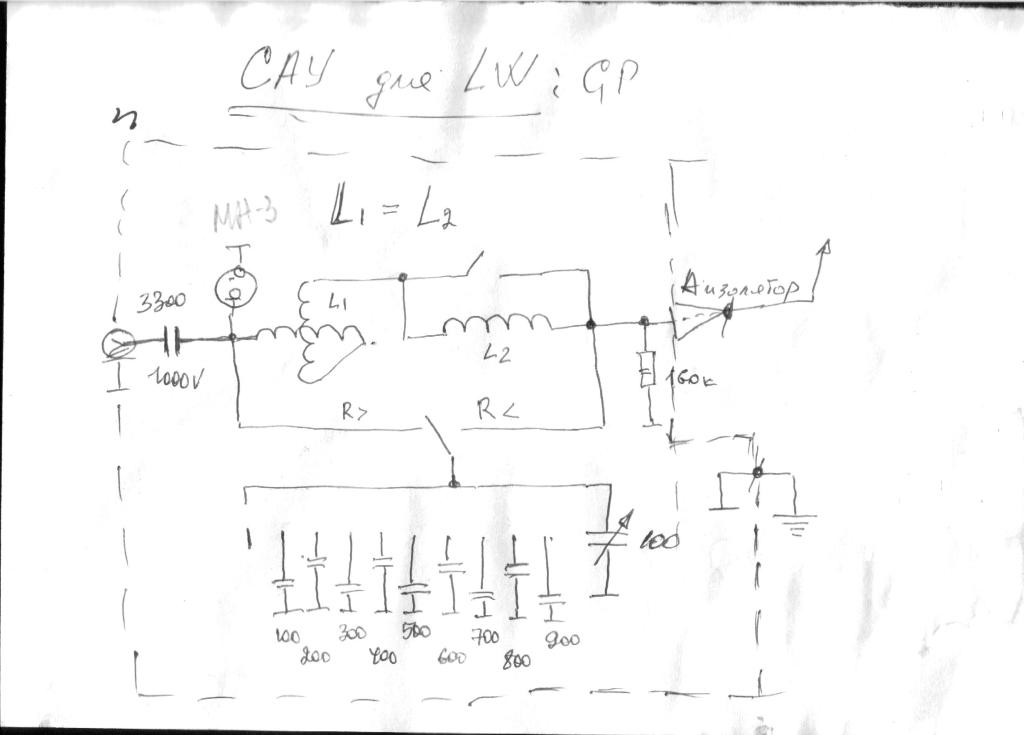 САУ для LW і GP
МН-3
L1 = L2
3300
1000V
L1
L2
Аизолятор
160к
R>
R<
100
100
200
300
400
500
600
700
800
900